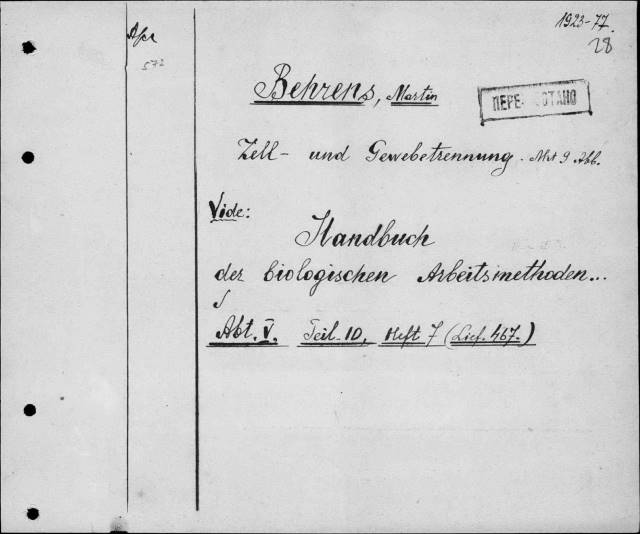 1923-77
28
572
Behrens, Martin
Zell- und Gewebetrennung. Mit 9 Abb.
Vide:
Handbuch
der biologischen Arbeitsmethoden...
Abt. V. Teil 10, Heft 7 (Lief. 467.)